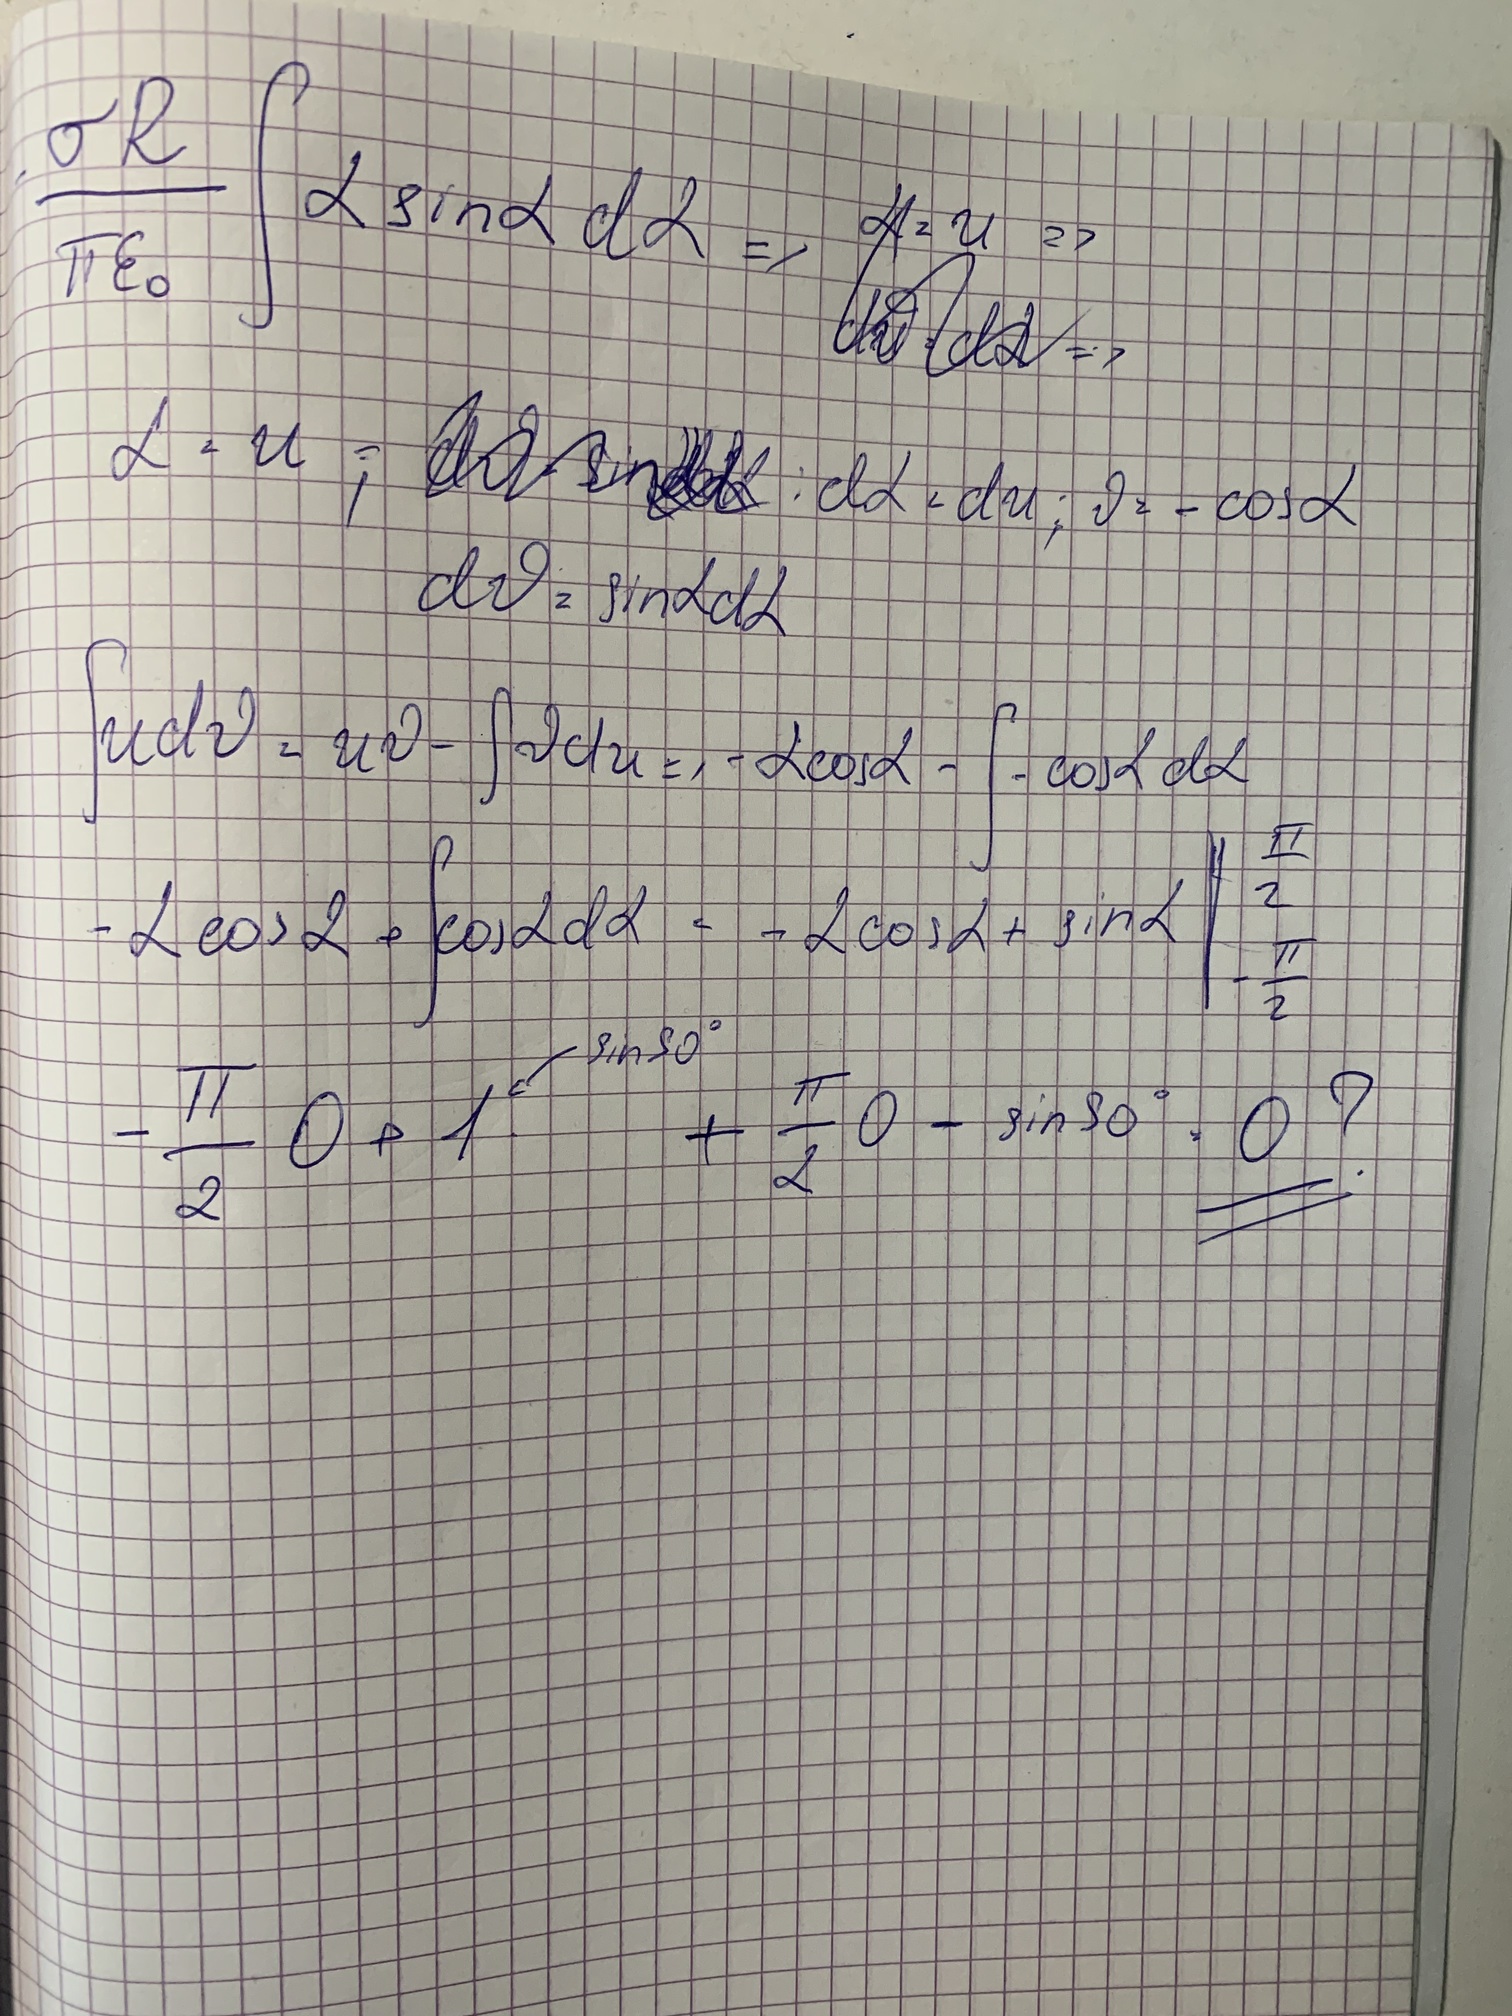 σR/πε₀ ∫ α sinα dα => α = u =>
=>
α = u ; : dα = du ; v = - cosα
dv = sinα dα
∫ u dv = uv - ∫ v du => - α cosα - ∫ - cosα dα
- α cosα + ∫ cosα dα = - α cosα + sinα | π/2 - π/2
sin90°
- π/2 0 + 1 + π/2 0 - sin90° = 0 ?